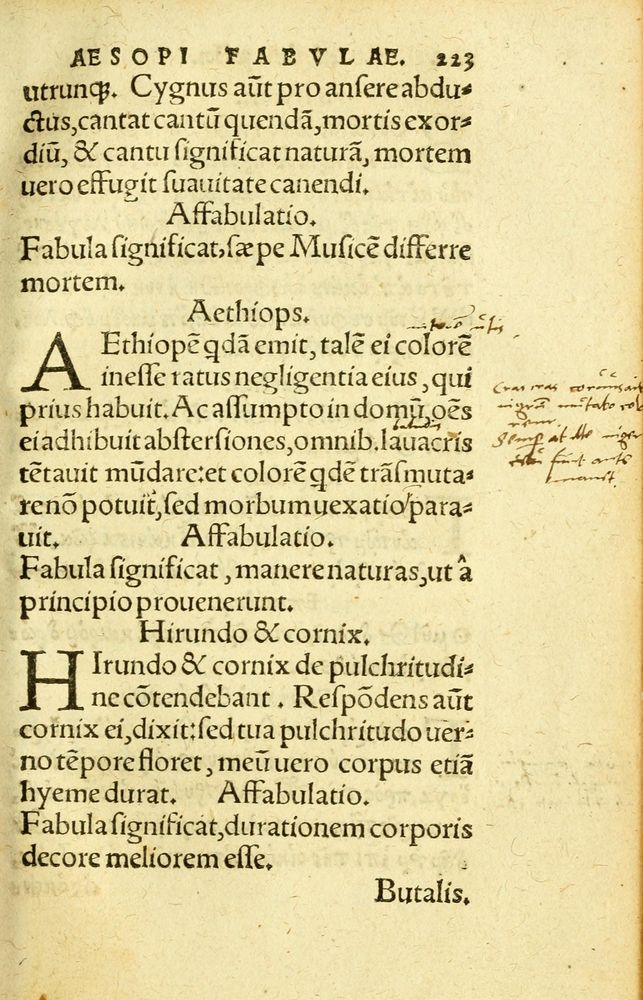 AESOPI FABVLAE. 223
utrunqꝫ. Cygnus aūt pro ansere abdu-
ctus, cantat cantū quendā, mortis exor-
diū, & cantu significat naturā, mortem
uero effugit suauitate canendi.
Affabulatio.
Fabula significat, sæpe Musicē differre
mortem.
Aethiops.
AEthiopē qdā emit, talē ei colorē
inesse ratus negligentia eius, qui
prius habuit. Ac assumpto in domū, oēs
ei adhibuit abstersiones, omnib. lauacris
tētauit mūdare: et colorē qdē trāsmuta-
re nō potuit, sed morbum uexatio para-
uit. Affabulatio.
Fabula significat, manere naturas, ut â
principio prouenerunt.
Hirundo & cornix.
HIrundo & cornix de pulchritudi-
ne cōtendebant. Respōdens aūt
cornix ei, dixit: sed tua pulchritudo uer-
no tēpore floret, meū uero corpus etiā
hyeme durat. Affabulatio.
Fabula significat, durationem corporis
decore meliorem esse.
Butalis.